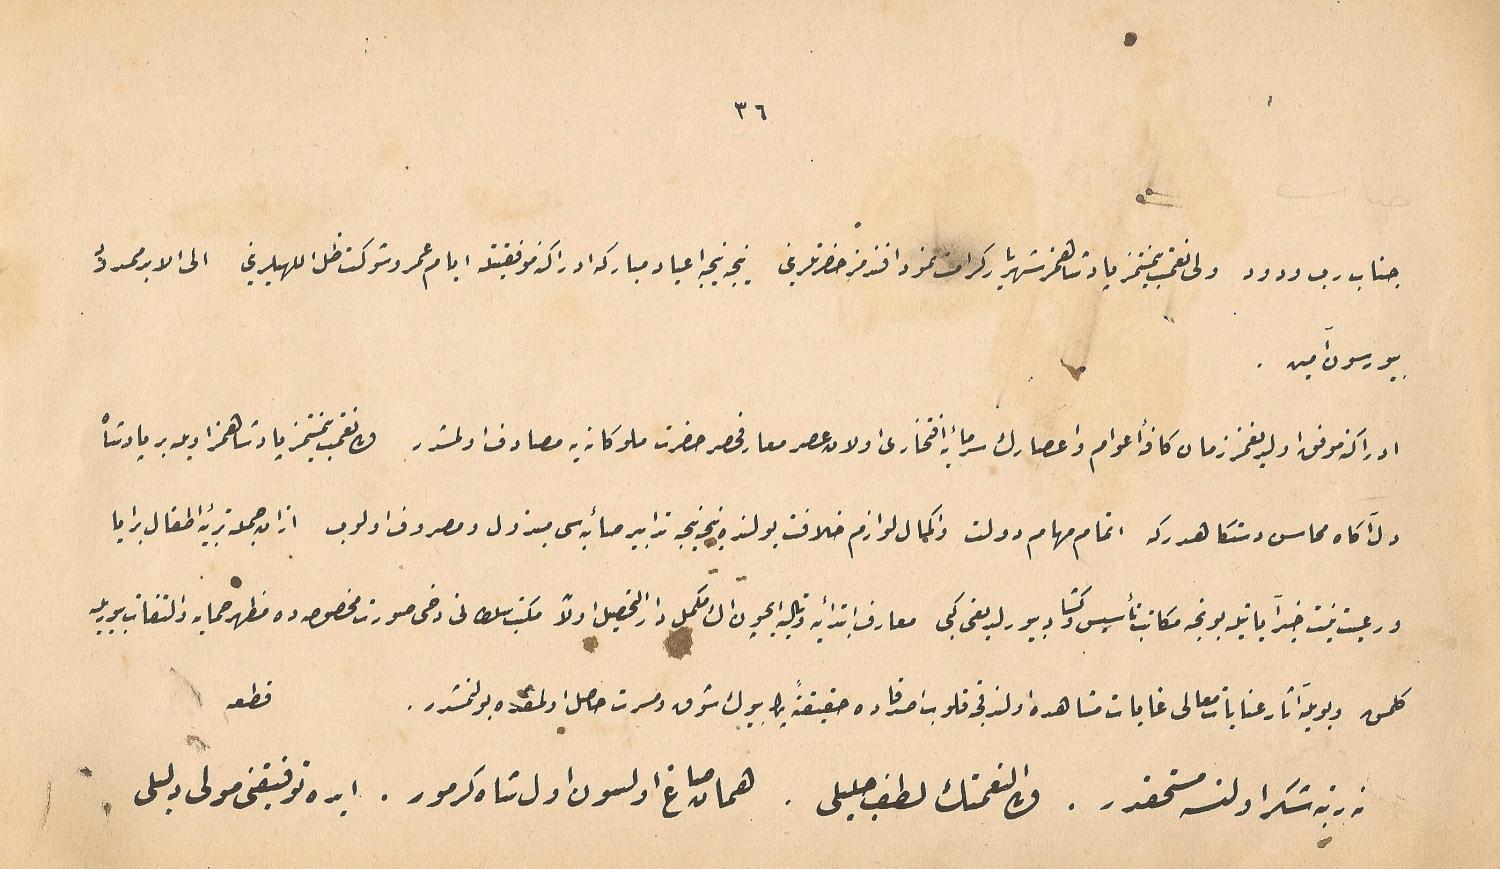 ٣٦
جناب رب ودود ولی نعمت بیمنتمز پادشاهمز شهریار کرامتنمود افندمز حضرتلرینی نیجه نیجه اعیاد مبارکه ادراکنه موفقیتله ایام عمر و شوکت ظل اللهیلرینی الی الابد ممدود
بیورسون آمین .
ادراکنه موفق اولدیغمز زمان کافهٔ اعوام و اعصارك سرمایهٔ افتخاری اولان عصر معارفحصر حضرت ملوکانه یه مصادف اولمشدر ولی نعمت بیمنتمز پادشاهمز اویله بر پادشاه
دل آکاه محاسن دستکاهدرکه اتمام مهام دولت و اکمال لوازم خلافت یولنده نیجه نیجه تدابیر صائبه سی مبذول و مصروف اولوب ازان جمله تربیهٔ اطفال برایا
و رعیت نیت خیر آیاتیله بونجه مکاتب تأسیس و کشاد بیورلدیغی کبی معارف ابتدائیه و تالیه ایچون اك مکمل دار التحصیل اولان مکتب سلطانی دخی صورت مخصوصه ده مظهر حمایه و التفات بیوریله
کلمش و بویله آثار عنایات معالی غایات مشاهده اولندقجه قلوب اصدقاده حقیقةً پك بیوك شوق و مسرت حاصل اولمقده بولنمشدر .
قطعه
نه رتبه شکر اولنسه مستحقدر . ولی النعمتك لطف جلیلی . همان صاغ اولسون اول شاه کرمور . ایده توفیقنی مولی دلیلی